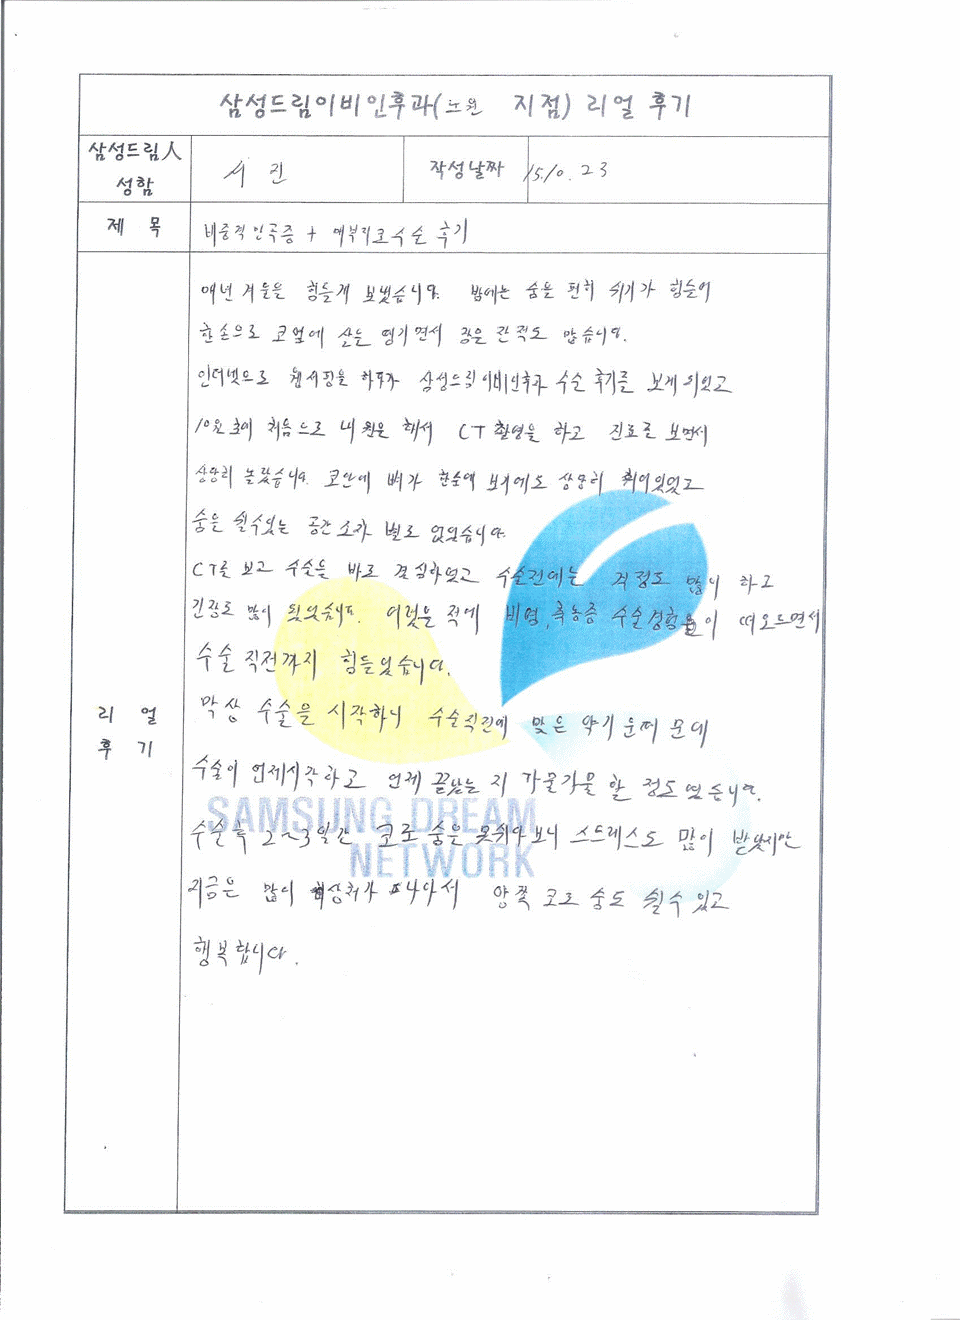 삼성드림이비인후과(노원 지점) 리얼 후기
삼성드림人 성함
서 진
작성날짜
15.10.23
제 목
비중격만곡증 + 수술 후기
리 얼 후 기
매년 겨울을 힘들게 보냈습니다. 밤에는 숨을 편히 쉬기가 힘들어
한손으로 코옆에 살을 당기면서 잠을 잔적도 많습니다.
인터넷으로 웹서핑을 하다가 삼성드림이비인후과 수술 후기를 보게 되었고
10월 초에 처음으로 내원을 해서 CT 촬영을 하고 진료를 보면서
상당히 놀랐습니다. 코안에 뼈가 한눈에 보기에도 상당히 휘어있었고
숨을 쉴수있는 공간 조차 별로 없었습니다.
CT를 보고 수술을 바로 결심하였고 수술전에는 걱정도 많이 하고
긴장도 많이 되었습니다. 어렸을 적에 비염, 축농증 수술경험들이 떠오르면서
수술 직전까지 힘들었습니다.
막상 수술을 시작하니 수술직전에 맞은 약기운때문에
수술이 언제시작하고 언제 끝났는 지 가물가물 할 정도였습니다.
수술후 2~3일간 코로 숨을 못쉬다 보니 스트레스도 많이 받았지만
지금은 많이 상처가 나아서 양쪽 코로 숨도 쉴수 있고
행복합니다.
SAMSUNG DREAM
NETWORK